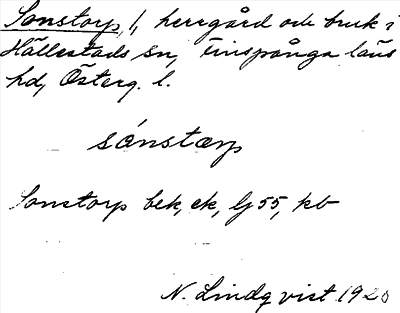 Sonstorp, 1, herrgård och bruk i
Hällestads sn, Finspånga läns
hd, Österg. l.
sónstɷrp
Sonstorp bek, ek, lj 55, kb
N. Lindqvist 1920